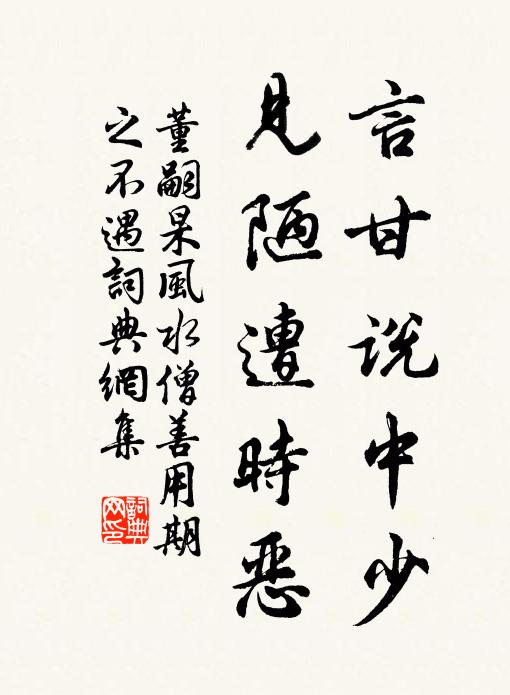 言甘说中少
見陋遭時恶
董嗣杲風水僧善用期
之不遇詞典網集
詞典
网印